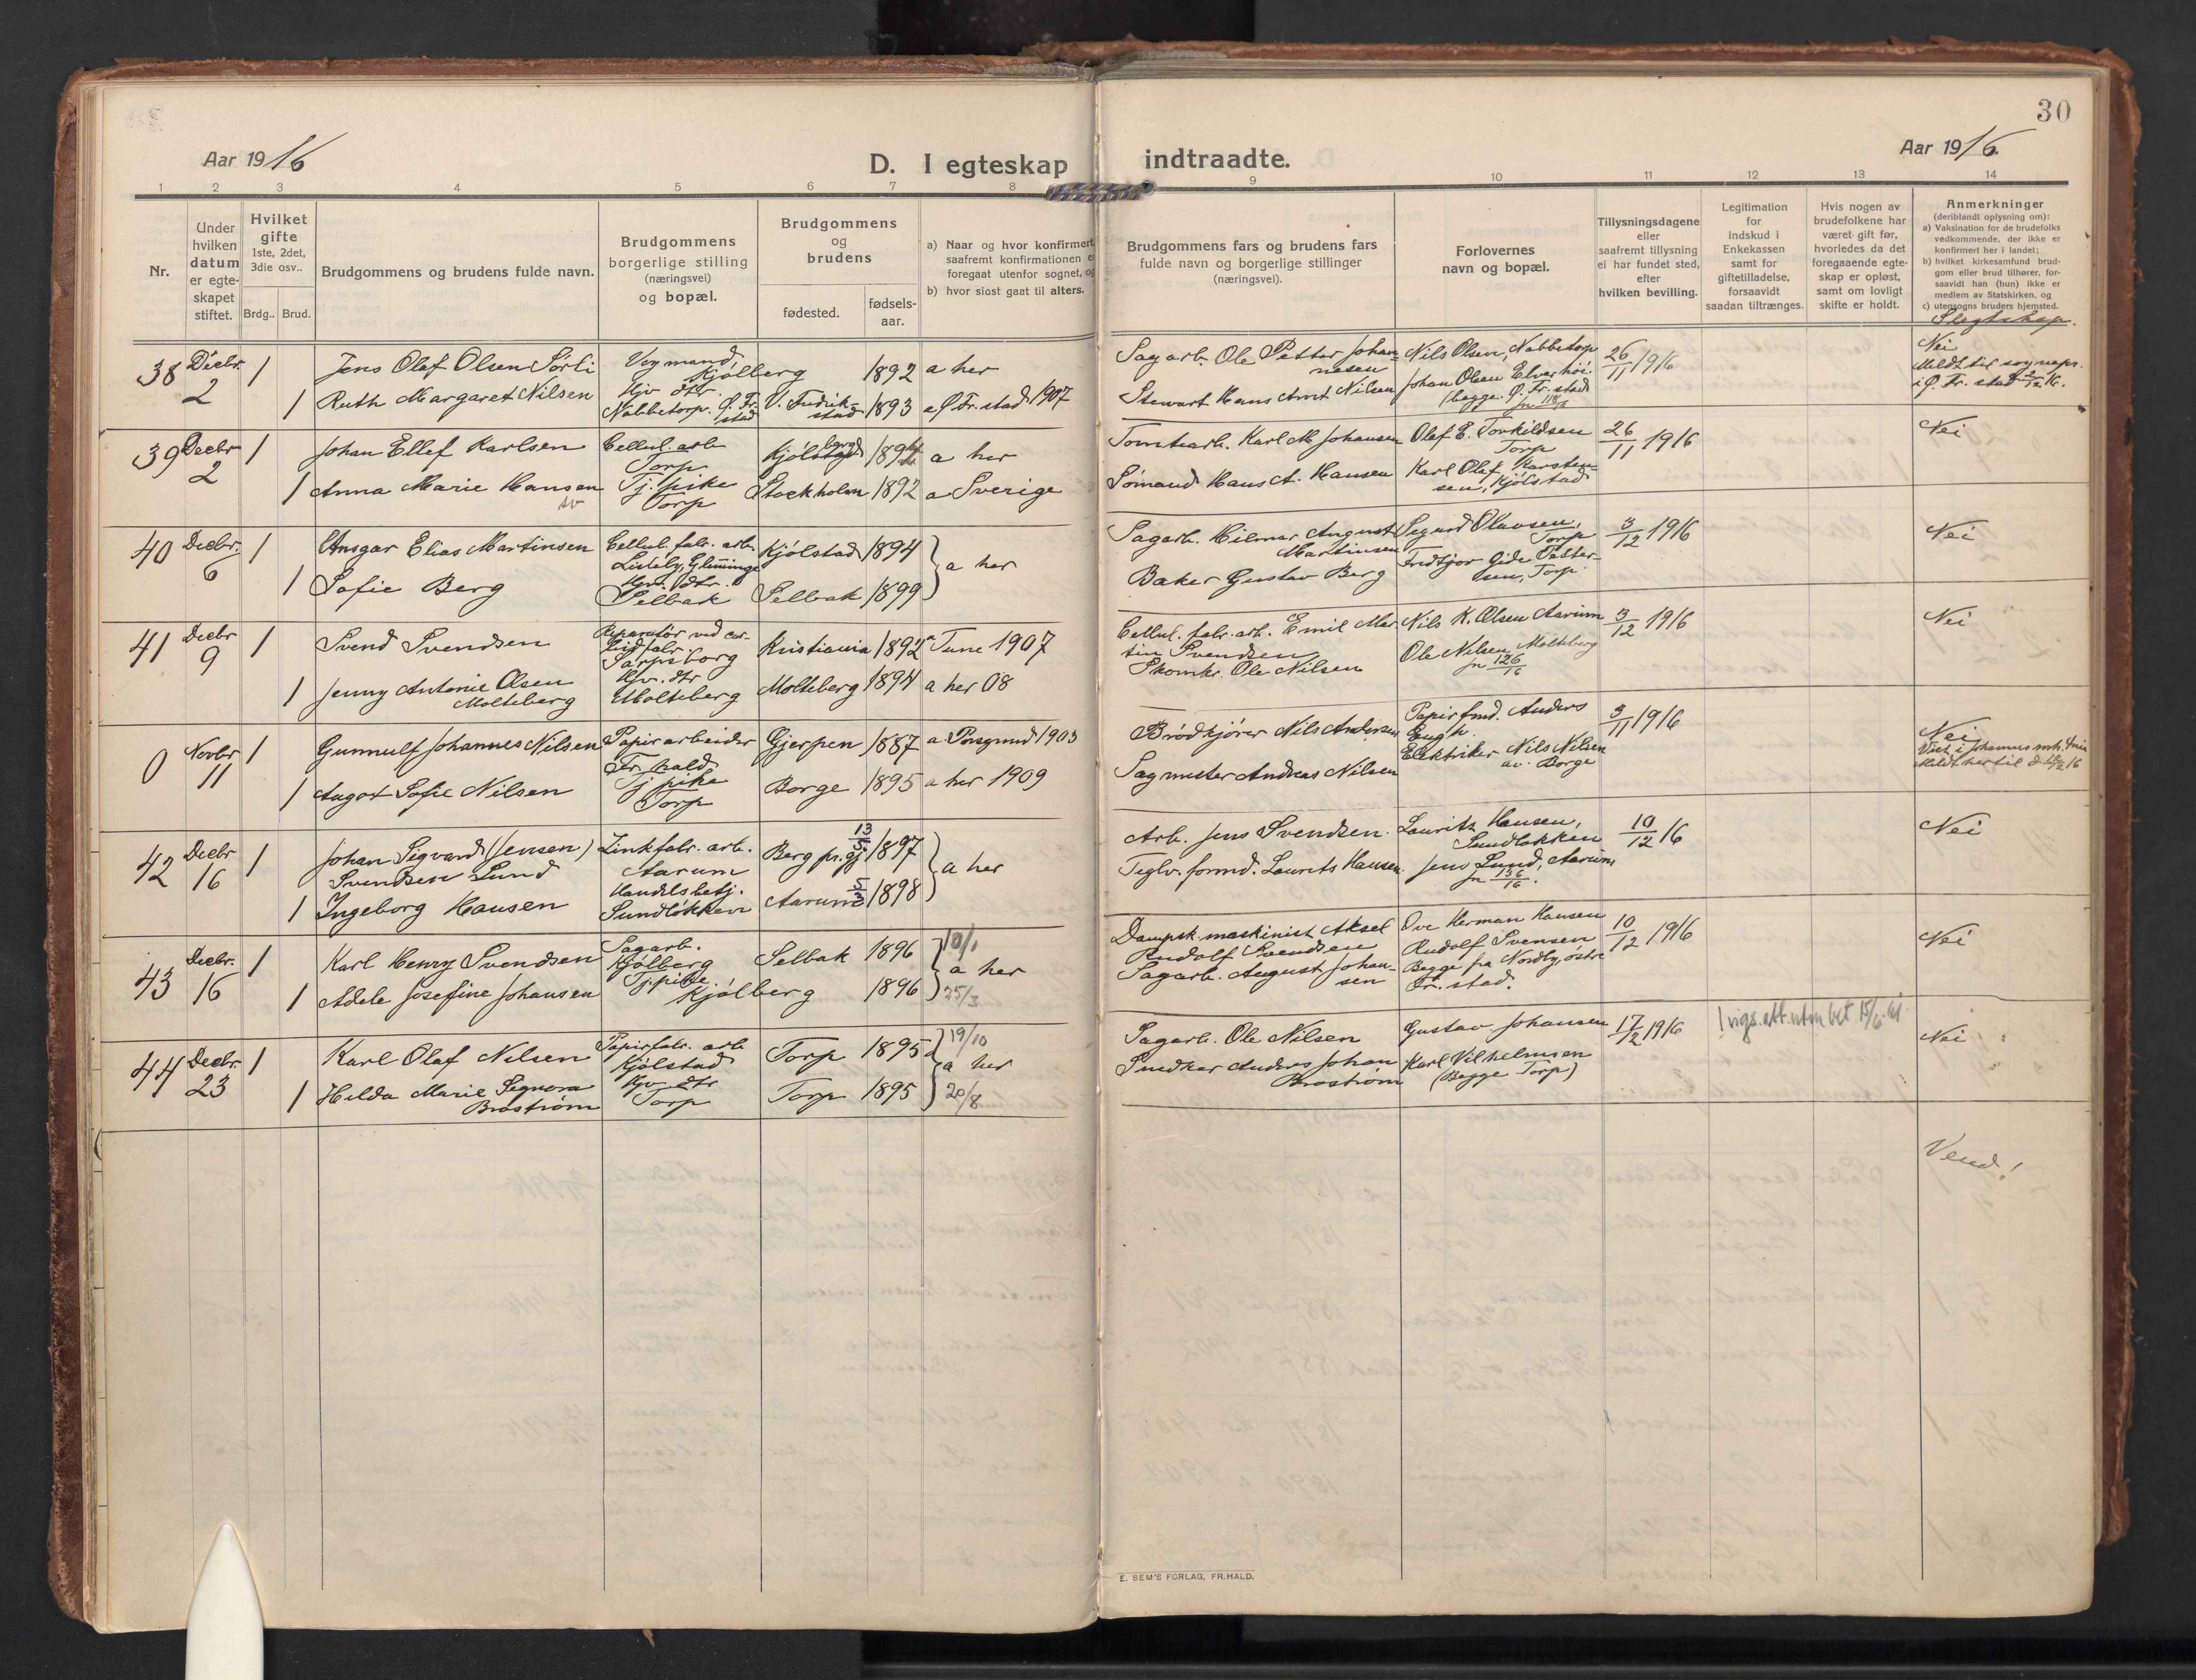 30
Aar 1916
D. I egteskap indtraadte.
Aar 1916.
1 2 3 4 5 6 7 8 9 10 11 12 13 14
Nr.
Under hvilken datum er egte- skapet stiftet.
Hvilket gifte 1ste, 2det, 3die osv..
Brdg.. Brud.
Brudgommens og brudens fulde navn.
Brudgommens borgerlige stilling (næringsvei) og bopæl.
Brudgommens og brudens
fødested.
fødsels- aar.
a) Naar og hvor konfirmert
saafremt konfirmationen e
foregaat utenfor sognet, og
b) hvor sidst gaat til alters.
Brudgommens fars og brudens fars
fulde navn og borgerlige stillinger
(næringsvei).
Forlovernes
navn og bopæl.
Tillysningsdagene
eller
saafremt tillysning
ei har fundet sted,
efter
hvilken bevilling.
Legitimation
for
indskud i
Enkekassen
samt for
giftetilladelse,
forsaavidt
saadan tiltrænges.
Hvis nogen av
brudefolkene har
været gift før,
hvorledes da det
foregaaende egte-
skap er opløst,
samt om lovligt
skifte er holdt.
Anmerkninger
(deriblandt oplysning om):
a) Vaksination for de brudefolks
vedkommende, der ikke er
konfirmert her i landet;
b) hvilket kirkesamfund brud-
gom eller brud tilhører, for-
saavidt han (hun) ikke er
medlem av Statskirken, og
c) utensogns bruders hjemsted.
Slegtskap.
38 Decbr. 2 1 Jens Olaf Olsen Sørli Vognmand, Kjølberg 1892 a her
1 Ruth Margaret Nilsen Hjv. dtr. Nabbetorp. Ø. Fr. stad V. Fredrik- stad 1893 a Ø Fr. stad 1907
Sagarb. Ole Petter Johan- nesen
Stewart Hans Arnt Nilsen
Nils Olsen, Nabbetorp
Johan Olsen Elverhøi
(begge Ø. Fr. stad
26/11 1916
Nei
Meldt til sognepr.
i Ø. Fr. stad 2/12 16.
39 Decbr 2 1 Johan Ellef Karlsen Cellul. arb Torp Kjølstad berg 1894 a her
1 Anna Marie Hansen Tj. pike Torp Stockholm 1892 a Sverige
Tomtearb. Karl M. Johansen
Sømand Hans A. Hansen
Olaf E. Torkildsen
Torp
Karl Olaf Karsten-
sen, Kjølstad
26/11 1916
Nei
40 Decbr. 6 1 Ansgar Elias Martinsen Cellul. fabr. arb. Lisleby, Glemminge Kjølstad 1894
1 Sofie Berg Hjv. dtr. Selbak Selbak 1899
a her
Sagarb. Hilmar August
Martinsen
Baker Gustav Berg
Sigurd Olavsen,
Torp
Fridtjov Gide Petter-
sen, Torp
3/12 1916
Nei
41 Decbr 9 1 Svend Svendsen Reparatør ved car- bidfabr. Sarpsborg Kristiania 1892 a Tune 1907
1 Jenny Antonie Olsen Molteberg Hjv. dtr Molteberg Molteberg 1894 a her 08
Cellul. fabr. arb. Emil Mar-
tin Svendsen
Skomkr. Ole Nilsen
Nils K. Olsen Aarum
Ole Nilsen Molteberg
jn 126/16
3/12 1916
Nei
0 Novbr 11 1 Gunnulf Johannes Nilsen Papirarbeider Fr. hald Gjerpen 1887 a Porsgrund 1903
1 Aagot Sofie Nilsen Tj. pike Torp Borge 1895 a her 1909
Brødkjører Nils Andersen
Sagmester Andreas Nilsen
Papirfmd. Anders
Engh.
Elektriker Nils Nilsen
av Borge
3/11 1916
Nei
42 Decbr 16 1 Johan Sigvard (Jensen) Svendsen Lund Zinkfabr. arb. Aarum Berg pr. gj. 13/5 1897
1 Ingeborg Hansen Handelsbetj. Sundløkken Aarum 1898
a her
Arb. Jens Svendsen.
Teglv. formd. Laurits Hansen
Laurits Hansen,
Sundløkken
Jens Lund, Aarum
jn 136/16.
10/12 16
Nei
43 Decbr. 16 1 Karl Henry Svendsen Sagarb. Kjølberg Selbak 1896 10/1
1 Adele Josefine Johansen Tj. pike Kjølberg 1896 25/3
a her
Dampsk. maskinist Aksel
Rudolf Svendsen
Sagarb. August Johan-
sen
Ove Herman Hansen
Rudolf Svensen
Begge fra Nordby, østre
Fr. stad.
10/12 1916
Nei
44 Decbr. 23 1 Karl Olaf Nilsen Papirfabr. arb Kjølstad Torp 1895 19/10
1 Hilda Marie Signora Brostrøm Hjv. dtr Torp Torp 1895 20/8
a her
Sagarb. Ole Nilsen
Snedker Anders Johan
Brostrøm
Gustav Johansen
Karl Vilhelmsen
(Begge Torp)
17/12 1916
1 vigs. att. utm bet 15/6 61
Nei
Vend!
E. SEM'S FORLAG, FR.HALD.